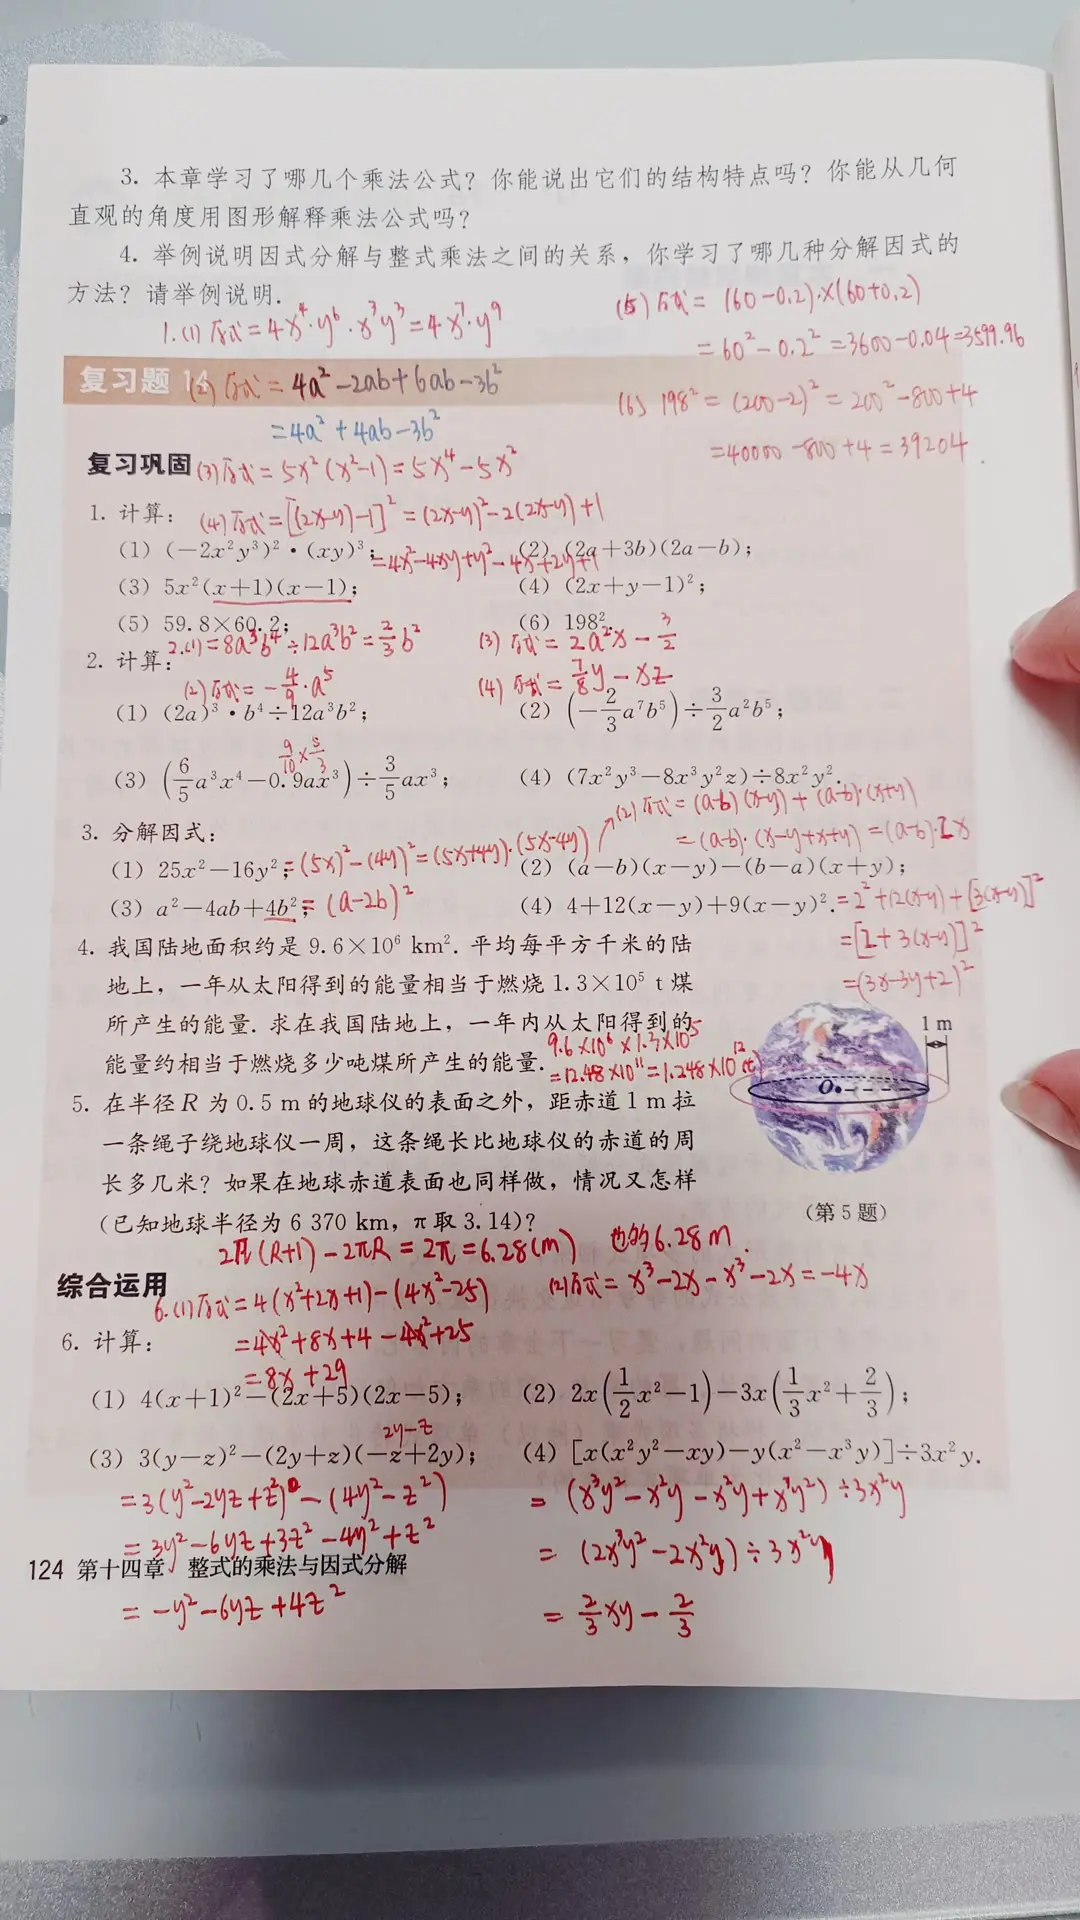 3. 本章学习了哪几个乘法公式？你能说出它们的结构特点吗？你能从几何
直观的角度用图形解释乘法公式吗？
4. 举例说明因式分解与整式乘法之间的关系，你学习了哪几种分解因式的
方法？请举例说明.
1.(1)原式=4x⁴·y⁶·x³y³=4x⁷·y⁹
(5)原式=(60-0.2)×(60+0.2)
=60²-0.2²=3600-0.04=3599.96
复习题 14
(2)原式=4a²-2ab+6ab-3b²
=4a²+4ab-3b²
(6) 198²=(200-2)²=200²-800+4
=40000-800+4=39204
复习巩固
(3)原式=5x²(x²-1)=5x⁴-5x²
1. 计算：
(4)原式=[(2x-y)-1]²=(2x-y)²-2(2x-y)+1
=4x²-4xy+y²-4x+2y+1
(1) (-2x²y³)²·(xy)³;
(2) (2a+3b)(2a-b);
(3) 5x²(x+1)(x-1);
(4) (2x+y-1)²;
(5) 59.8×60.2;
(6) 198².
2.(1)=8a³b⁴÷12a³b²=2/3b²
(3)原式=2a²x-3/2
2. 计算：
(2)原式=-4/9·a⁵
(4)原式=7/8y-xz
(1) (2a)³·b⁴÷12a³b²;
(2) (-2/3a⁷b⁵)÷3/2a²b⁵;
9/10×5/3
(3) (6/5a³x⁴-0.9ax³)÷3/5ax³;
(4) (7x²y³-8x³y²z)÷8x²y².
(2)原式=(a-b)(x-y)+(a-b)·(x+y)
=(a-b)·(x-y+x+y)=(a-b)·2x
3. 分解因式：
(1) 25x²-16y²;=(5x)²-(4y)²=(5x+4y)·(5x-4y)
(2) (a-b)(x-y)-(b-a)(x+y);
(3) a²-4ab+4b²;=(a-2b)²
(4) 4+12(x-y)+9(x-y)².=2²+12(x-y)+[3(x-y)]²
=[2+3(x-y)]²
=(3x-3y+2)²
4. 我国陆地面积约是 9.6×10⁶ km². 平均每平方千米的陆
地上，一年从太阳得到的能量相当于燃烧 1.3×10⁵ t 煤
所产生的能量. 求在我国陆地上，一年内从太阳得到的
能量约相当于燃烧多少吨煤所产生的能量.
9.6×10⁶×1.3×10⁵
=12.48×10¹¹=1.248×10¹²(t)
1 m
O
5. 在半径 R 为 0.5 m 的地球仪的表面之外，距赤道 1 m 拉
一条绳子绕地球仪一周，这条绳长比地球仪的赤道的周
长多几米？如果在地球赤道表面也同样做，情况又怎样
(已知地球半径为 6 370 km，π取 3.14)？
(第 5 题)
2π(R+1)-2πR=2π=6.28(m) 也约6.28m.
综合运用
6.(1)原式=4(x²+2x+1)-(4x²-25)
(2)原式=x³-2x-x³-2x=-4x
=4x²+8x+4-4x²+25
6. 计算：
=8x+29
(1) 4(x+1)²-(2x+5)(2x-5);
(2) 2x(1/2x²-1)-3x(1/3x²+2/3);
2y-z
(3) 3(y-z)²-(2y+z)(-z+2y);
(4) [x(x²y²-xy)-y(x²-x³y)]÷3x²y.
=3(y²-2yz+z²)-(4y²-z²)
=(x³y²-x²y-x²y+x³y²)÷3x²y
=3y²-6yz+3z²-4y²+z²
=(2x³y²-2x²y)÷3x²y
124 第十四章 整式的乘法与因式分解
=-y²-6yz+4z²
=2/3xy-2/3